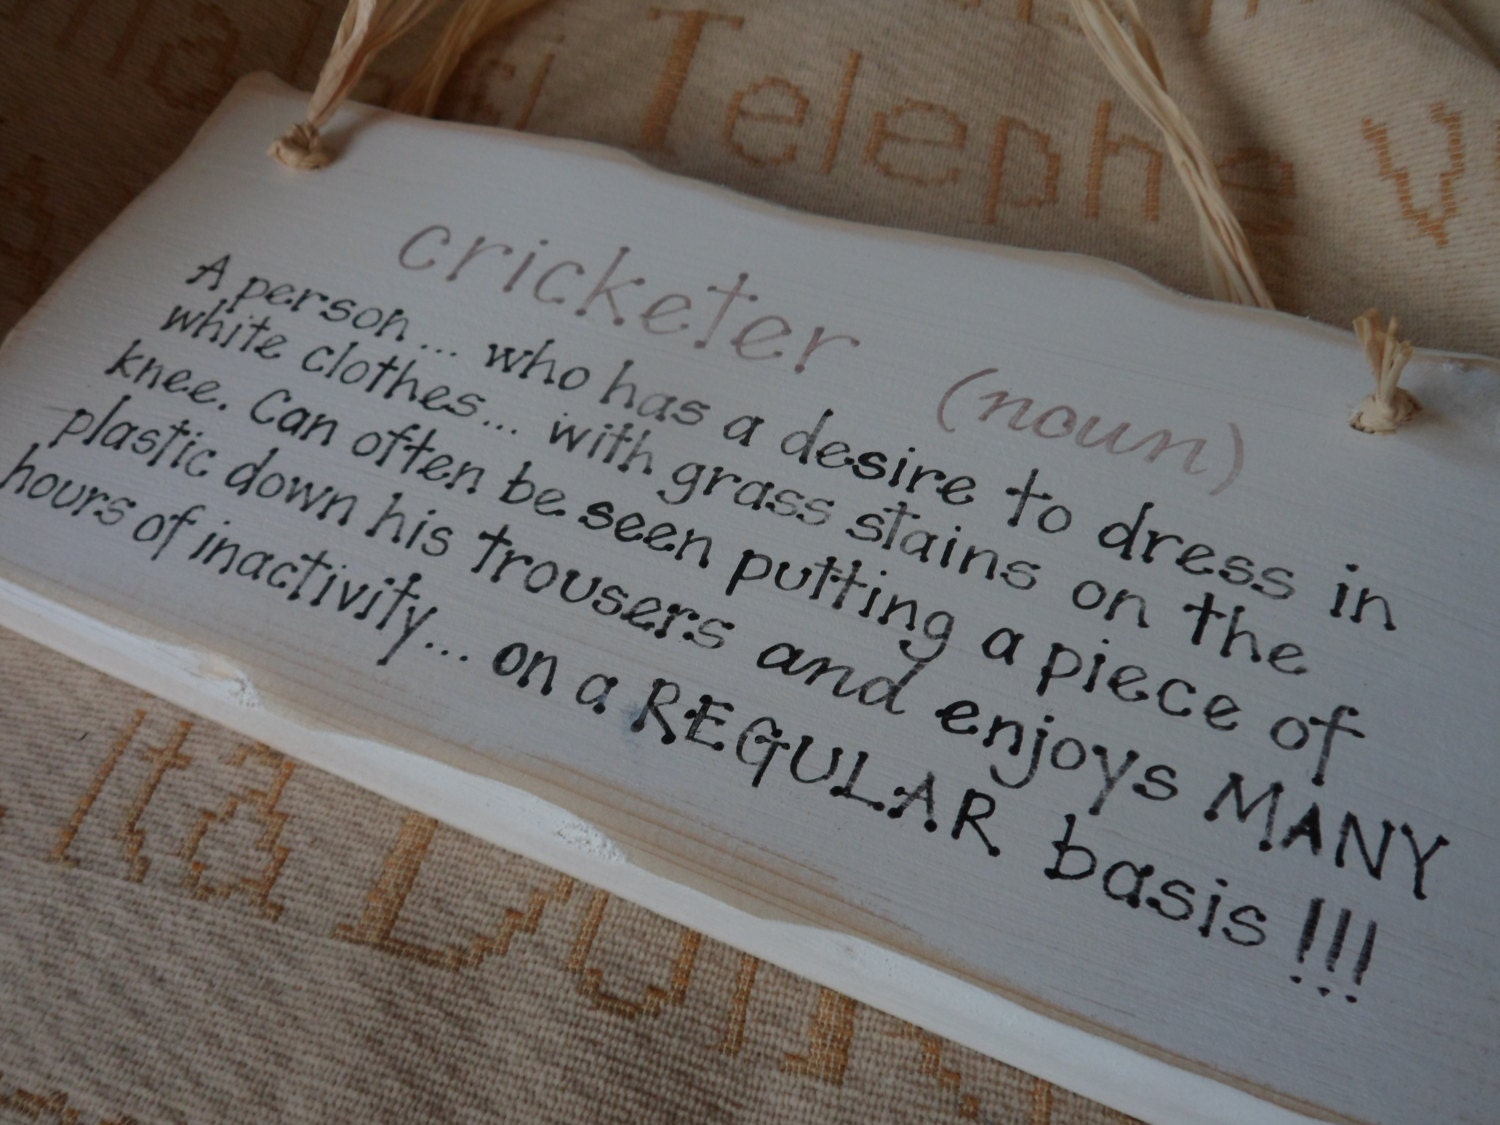 Telephe V
cricketer (noun)
A person... who has a desire to dress in
white clothes... with grass stains on the
knee. Can often be seen putting a piece of
plastic down his trousers and enjoys MANY
hours of inactivity... on a REGULAR basis!!!